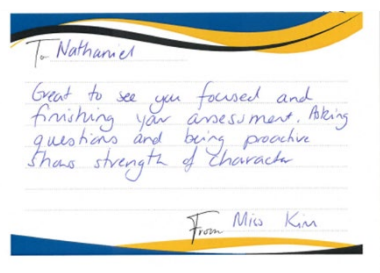 To Nathaniel
Great to see you focused and
finishing your assessment. Asking
questions and being proactive
shows strength of character
From Miss Kim